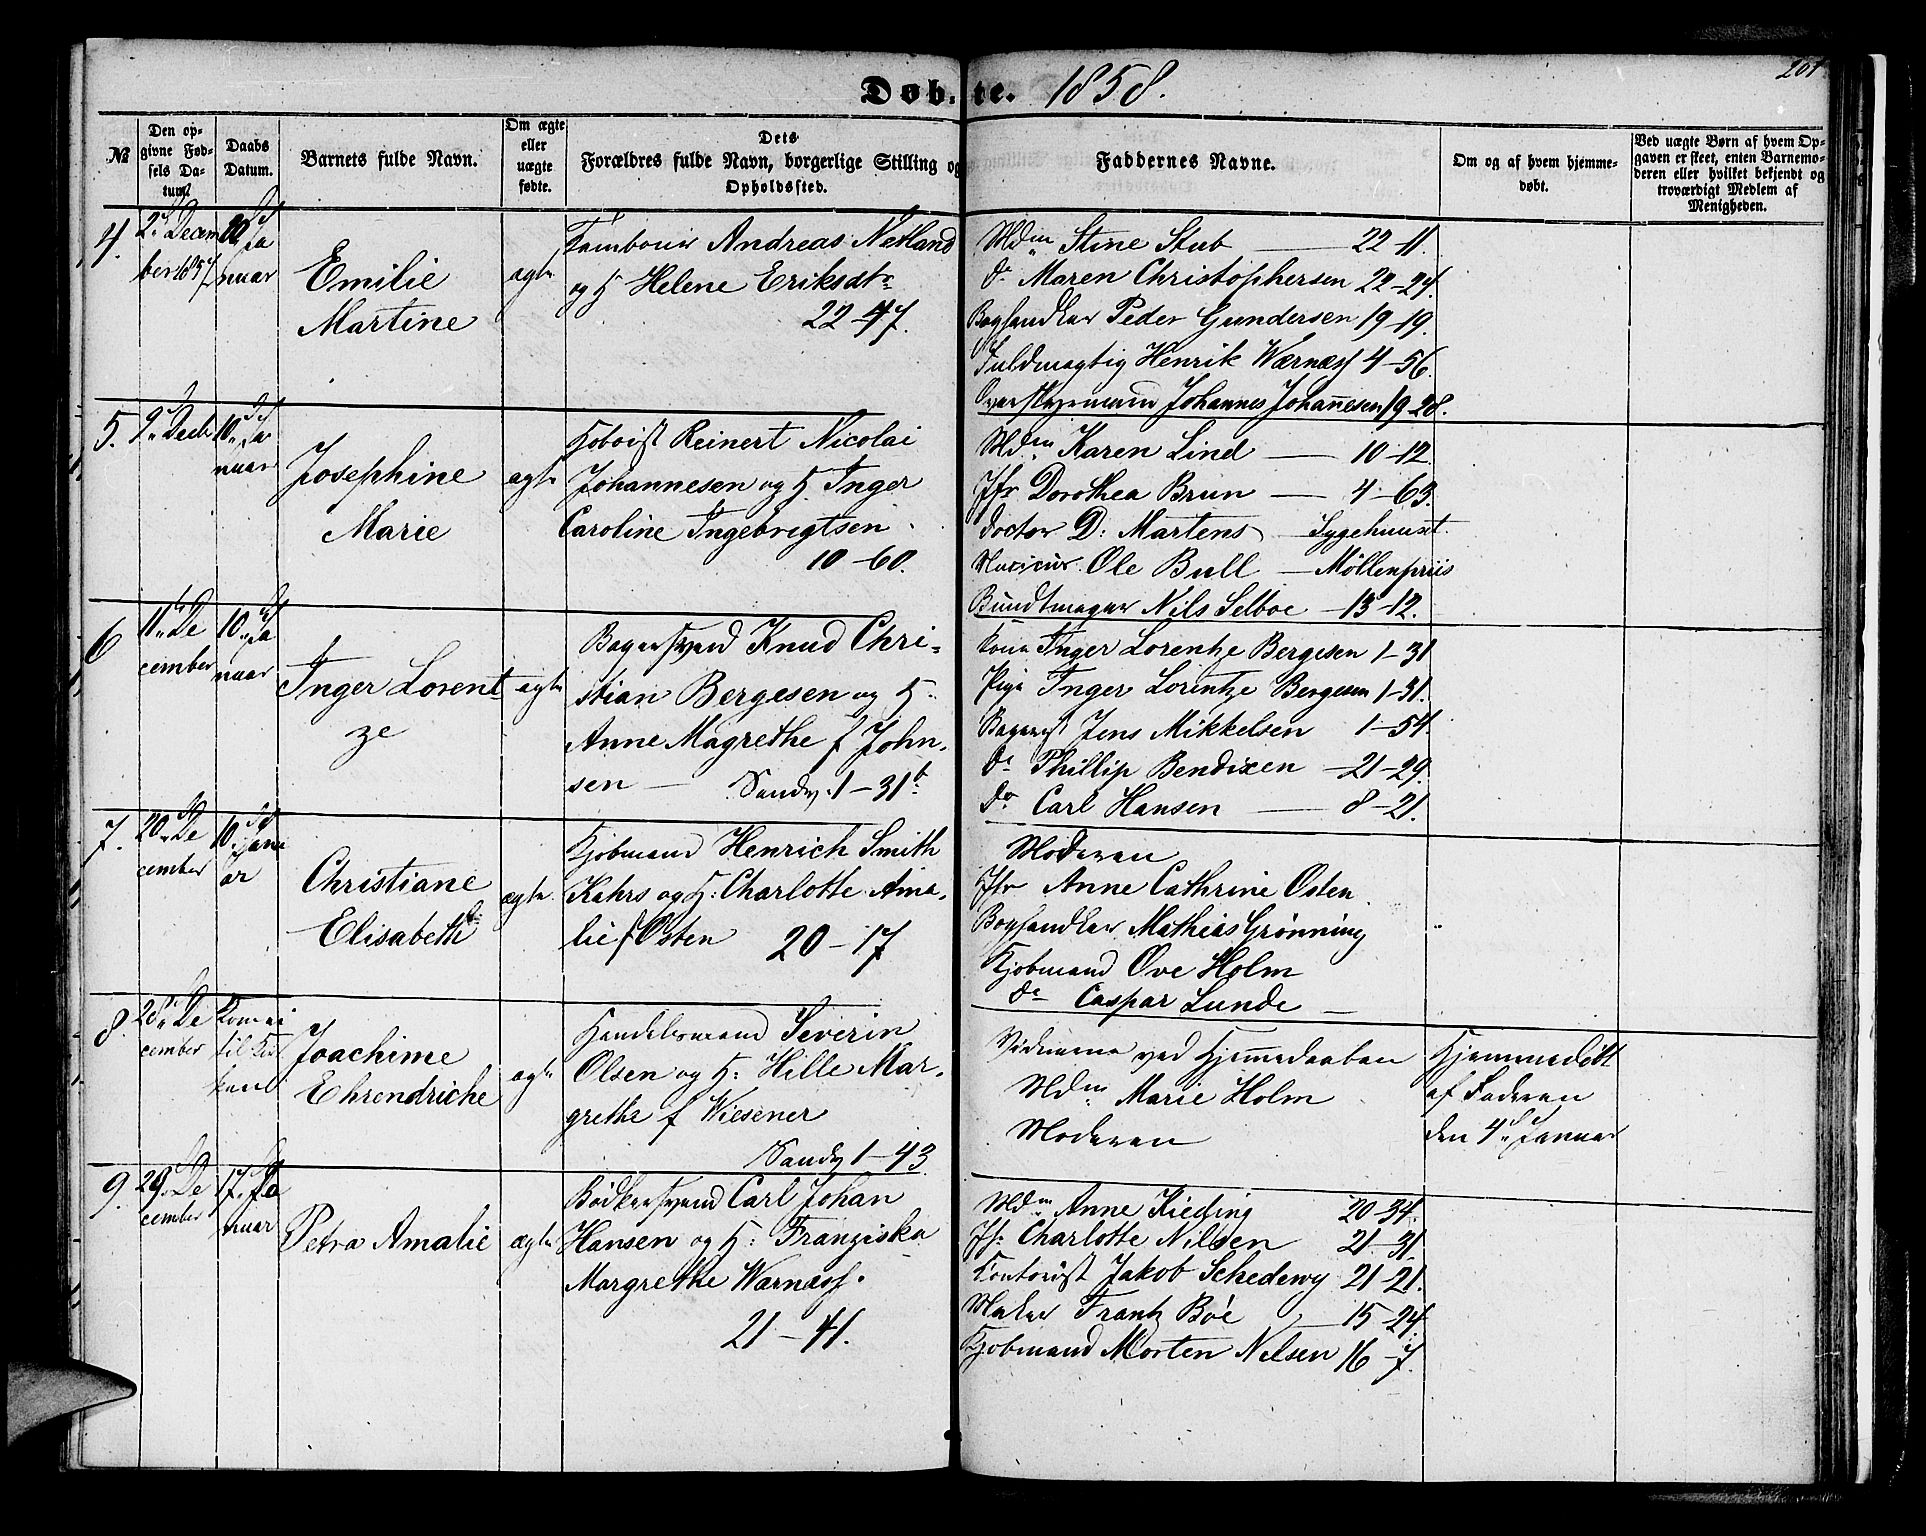 Døbte. 1858.
201
№
Den opgivne Fødsels Datum.
Daabs Datum.
Barnets fulde Navn.
Om ægte eller uægte fødte.
Dets Forældres fulde Navn, borgerlige Stilling og Opholdssted.
Faddernes Navne.
Om og af hvem hjemmedøbt.
Ved uægte Børn af hvem Opgaven er skeet, enten Barnemoderen eller hvilket bekjendt og troværdigt Medlem af Menigheden.
4.
2d Decem
ber 1857.
10d Ja
nuar
Emilie
Martine
ægte
Tambour Andreas Netland
og H. Helene Eriksdtr
22-47.
Mdm Stine Stub 22-11.
do Maren Christophersen 22-24.
Boghandler Peder Gundersen 19-19.
Fuldmægtig Henrik Wærness 4-56.
Johannes Johannesen 19-28.
5.
9d Decbr
10d Ja
nuar
Josephine
Marie
ægte
Hoboist Reinert Nicolai
Johannesen og H. Inger
Caroline Ingebrigtsen
10-60.
Mdm Karen Lind 10-12.
Jfr Dorothea Brun 4-63.
Doctor D: Martens Sygehuset.
Musicus Ole Bull Møllenpriis
Bundtmager Nils Selboe 13-12.
6
11d De
cember
10d Ja
nuar
Inger Lorent
ze
ægte
Bagersvend Knud Chri-
stian Bergesen og H:
Anne Magrethe f John-
sen Sandv. 1-31b
Kone Inger Lorentze Bergesen 1-31
Pige Inger Lorentze Bergesen 1-31.
Jens Mikkelsen 1-54.
do Phillip Bendixen 21-29.
do Carl Hansen 8-21.
7.
20d De
cember
10d Janu
ar
Christiane
Elisabeth
ægte
Kjøbmand Henrich Smith
Kahrs og H: Charlotte Ama-
lie f Osten 20-17
Moderen
Jfr Anne Cathrine Osten
Boghandler Mathias Grønning
Kjøbmand Ove Holm
do Caspar Lunde
8.
28d De
cember
til Kir
ken
Joachime
Ehrendriche
ægte
Handelsmand Severin
Olsen og H: Hille Mar-
grethe f Wiesener
Sandv 1-43
Vidnerne ved Hjemmedaaben
Mdm Marie Holm
Moderen
Hjemmedøbt
af Faderen
den 4d Januar
9.
29d De
cember
17d Ja
nuar
Petra Amalie
ægte
Bødkersvend Carl Johan
Hansen og H: Franziska
Margrethe Warnæss.
21-41.
Mdm Anne Kieding 20-34.
Jfr Charlotte Nilsen 21-31.
Kontorist Jakob Schedewy 21-21.
Maler Frantz Bøe 15-24.
Kjøbmand Morten Nilsen 16-7.